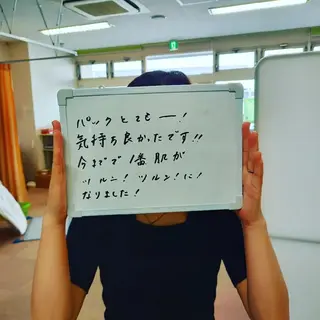 パックとてもー!
気持ち良かったです!!
今までで1番肌が
ツルン!ツルン!に!
なりました!